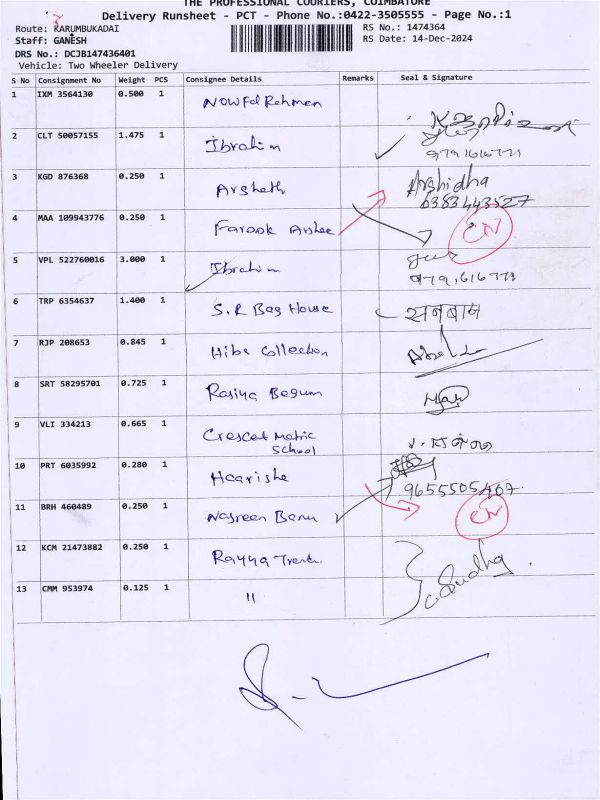 THE PROFESSIONAL COURIERS, COIMBATORE
Delivery Runsheet - PCT - Phone No.:0422-3505555 - Page No.:1
Route: KARUMBUKADAI
RS No.: 1474364
Staff: GANESH
RS Date: 14-Dec-2024
DRS No.: DCJB147436401
Vehicle: Two Wheeler Delivery
S No Consignment No Weight PCS Consignee Details Remarks Seal & Signature
1 IXM 3564130 0.500 1 Nowfal Rehman
2 CLT 50057155 1.475 1 Ibrahim
3 KGD 876368 0.250 1 Arsheth Arshidha
6383443527
4 MAA 109943776 0.250 1 Farook Arshee
5 VPL 522760016 3.000 1 Ibrahim
6 TRP 6354637 1.400 1 S.R Bag House सनबाज
7 RJP 208653 0.845 1 Hiba Collection
8 SRT 58295701 0.725 1 Rasiya Begum
9 VLI 334213 0.665 1 Crescent Matric
School
10 PRT 6035992 0.280 1 Haarisha
9655505407
11 BRH 460489 0.250 1 Nasreen Banu
12 KCM 21473882 0.250 1 Rayya Trends
13 CMM 953974 0.125 1 " Sudha